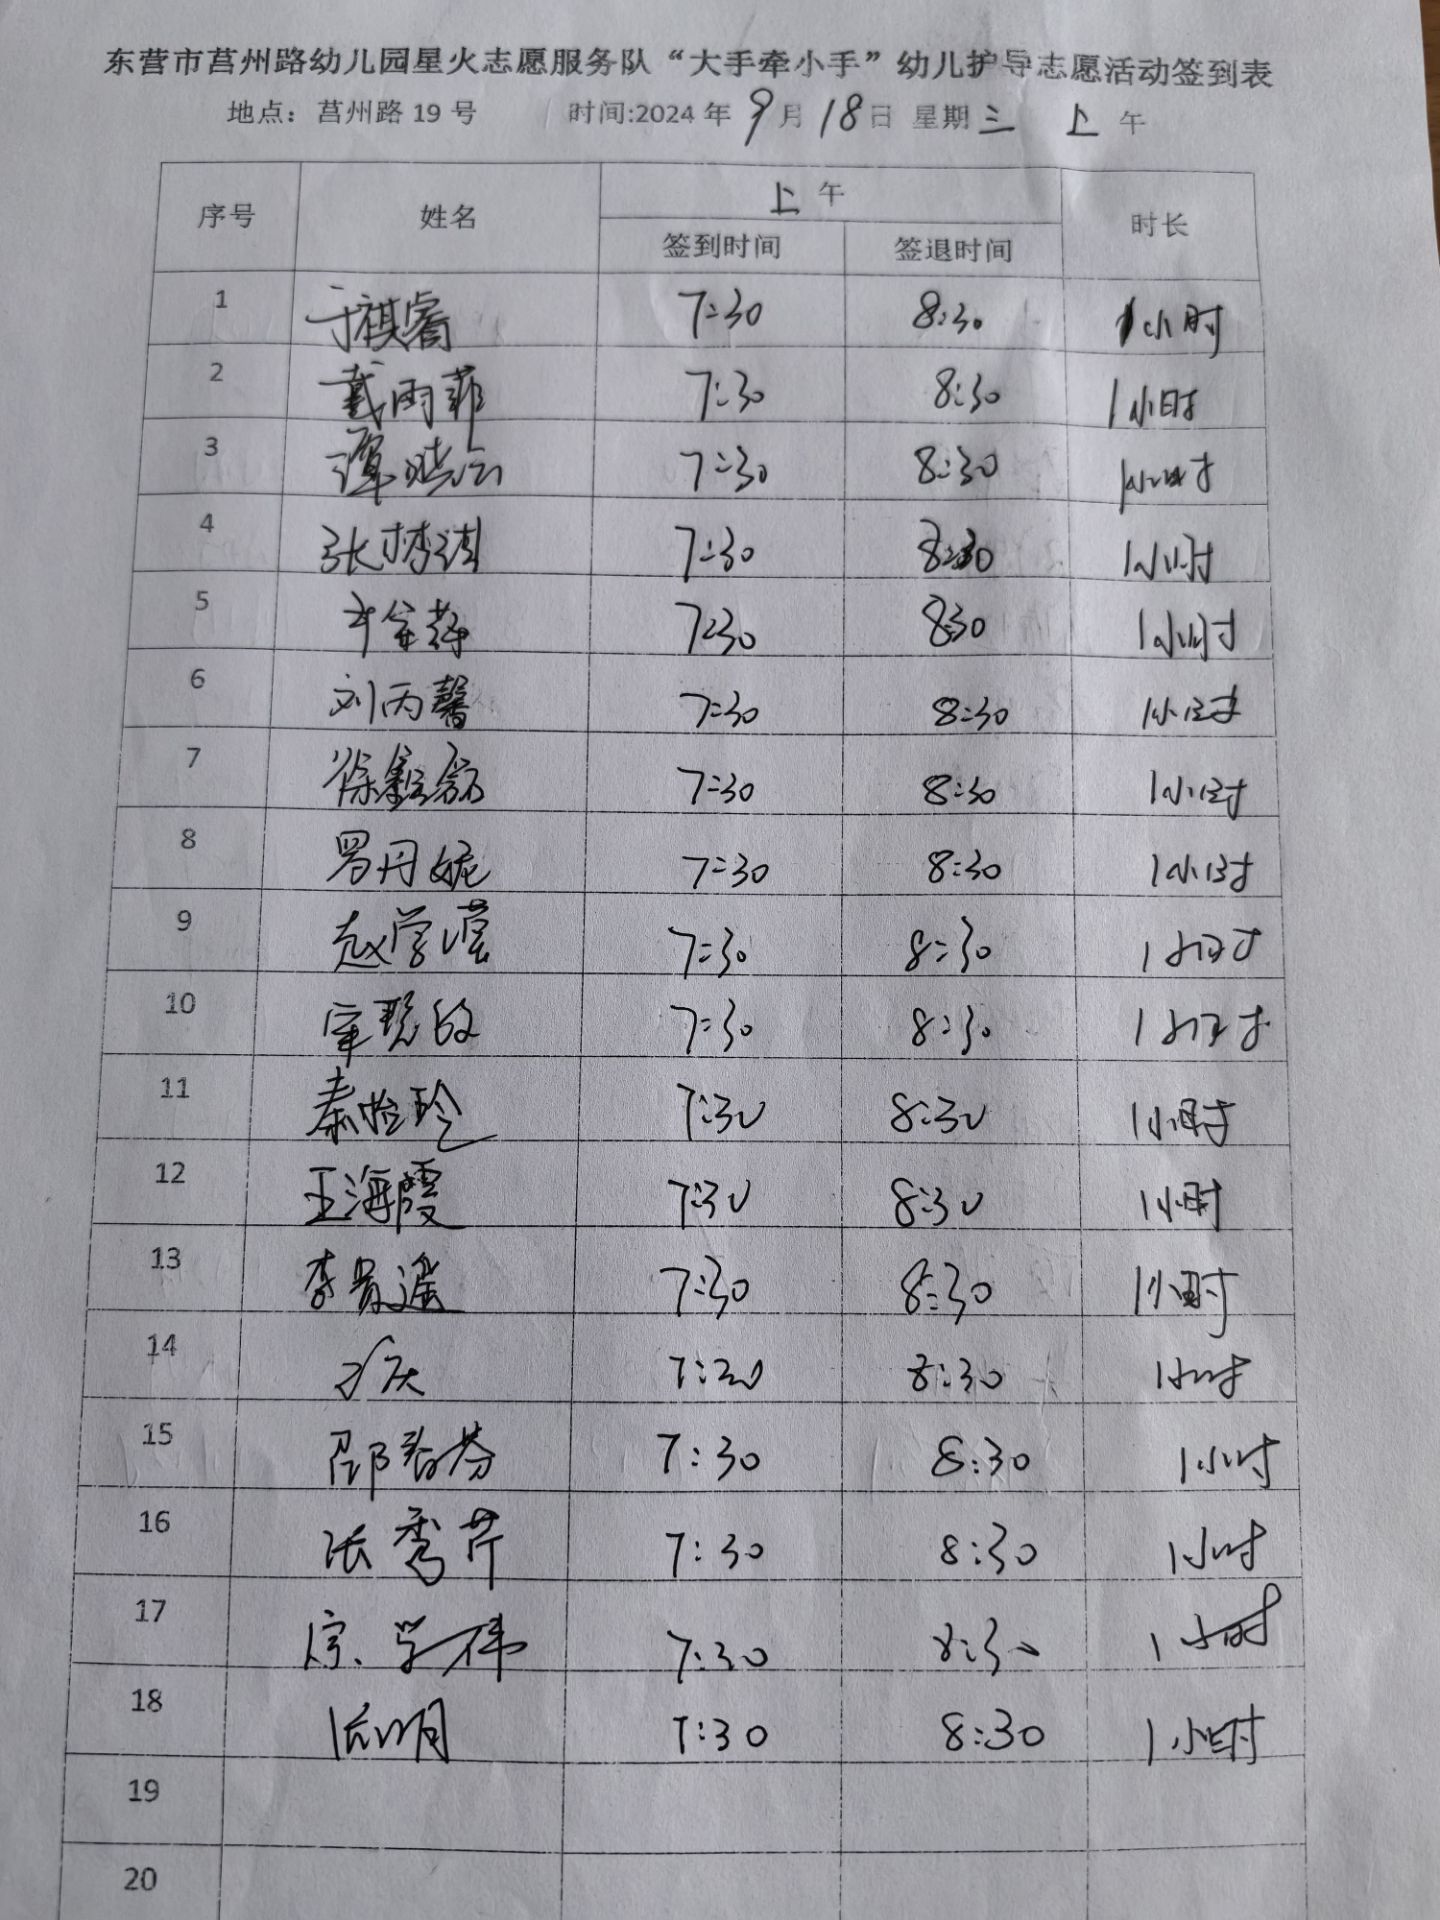 东营市莒州路幼儿园星火志愿服务队“大手牵小手”幼儿护导志愿活动签到表
地点：莒州路19号 时间:2024年9月18日 星期三 上午
序号 姓名 上午 时长
签到时间 签退时间
1 于祺睿 7:30 8:30 1小时
2 戴雨菲 7:30 8:30 1小时
3 谭晓云 7:30 8:30 1小时
4 张梦琪 7:30 8:30 1小时
5 7:30 8:30 1小时
6 刘丙馨 7:30 8:30 1小时
7 徐 7:30 8:30 1小时
8 罗丹妮 7:30 8:30 1小时
9 赵学滢 7:30 8:30 1小时
10 7:30 8:30 1小时
11 秦怡玲 7:30 8:30 1小时
12 王海霞 7:30 8:30 1小时
13 李 遥 7:30 8:30 1小时
14 7:30 8:30 1小时
15 邵春芬 7:30 8:30 1小时
16 张秀芹 7:30 8:30 1小时
17 学伟 7:30 8:30 1小时
18 明 7:30 8:30 1小时
19
20